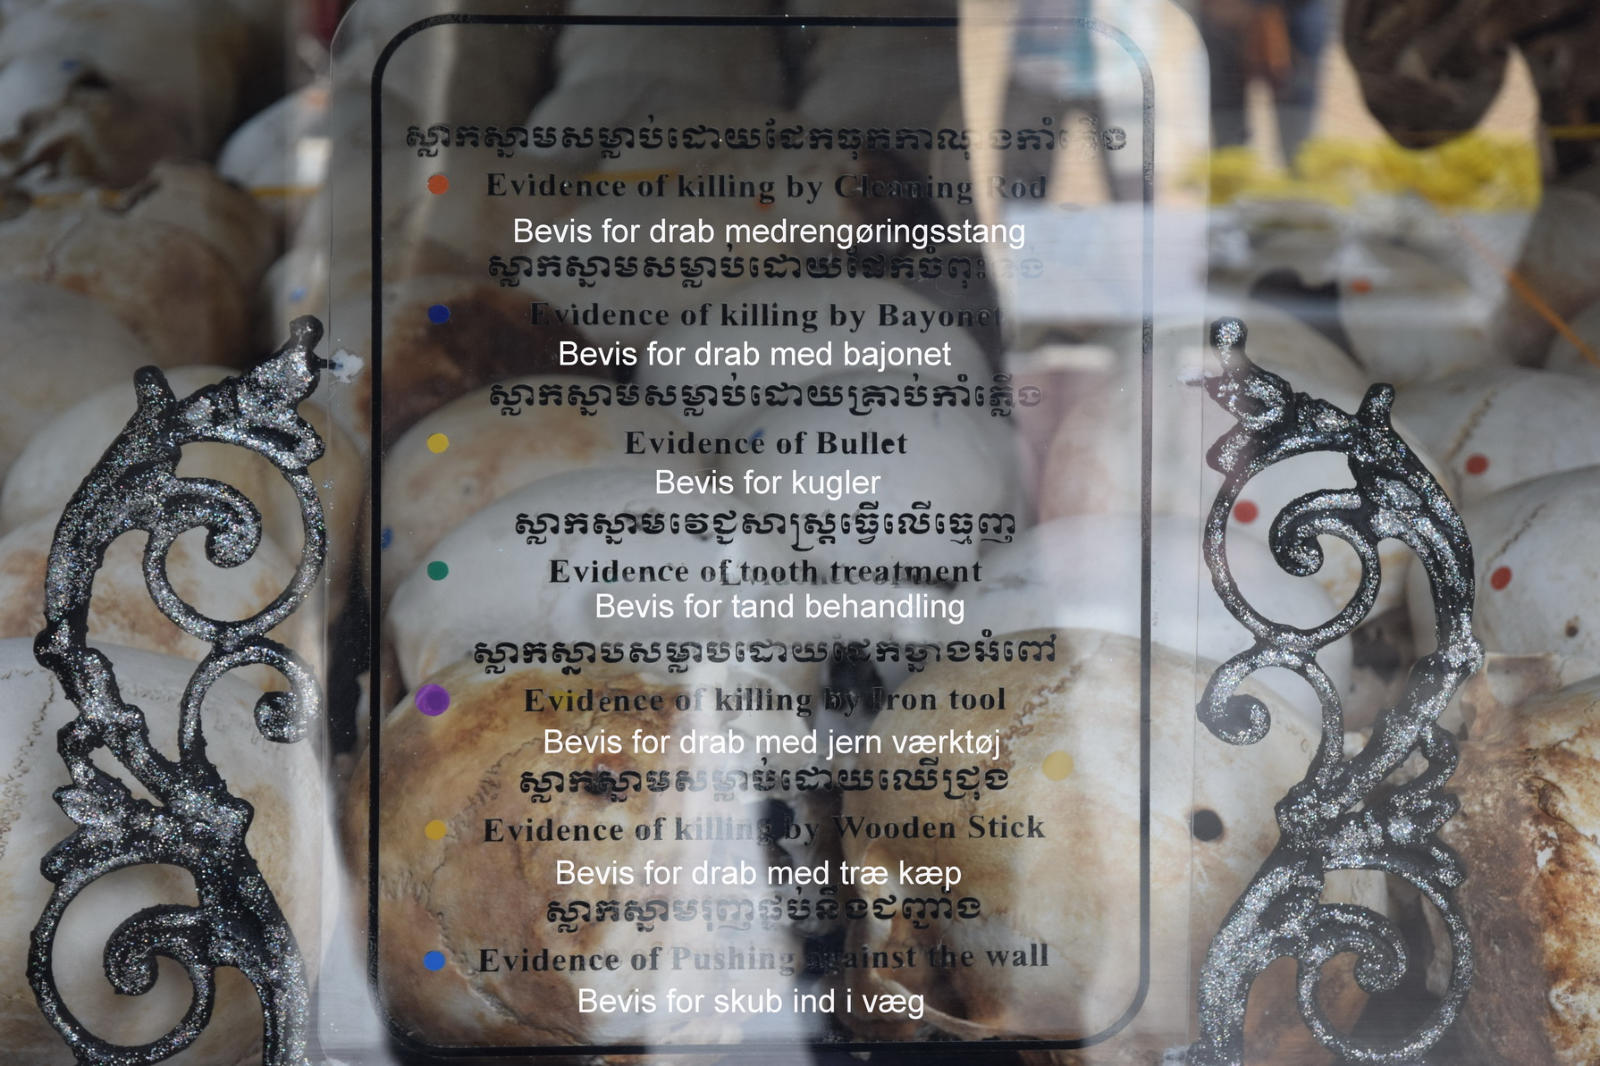 ស្លាកស្នាមសម្លាប់ដោយដែកធុកកាណុងកាំភ្លើង
Evidence of killing by Cleaning Rod
Bevis for drab medrengøringsstang
ស្លាកស្នាមសម្លាប់ដោយដែកចំពុះទុង
Evidence of killing by Bayonet
Bevis for drab med bajonet
ស្លាកស្នាមសម្លាប់ដោយគ្រាប់កាំភ្លើង
Evidence of Bullet
Bevis for kugler
ស្លាកស្នាមវេជ្ជសាស្ត្រធ្វើលើធ្មេញ
Evidence of tooth treatment
Bevis for tand behandling
ស្លាកស្នាមសម្លាប់ដោយដែកធ្នាងអំពៅ
Evidence of killing by Iron tool
Bevis for drab med jern værktøj
ស្លាកស្នាមសម្លាប់ដោយឈើជ្រុង
Evidence of killing by Wooden Stick
Bevis for drab med træ kæp
ស្លាកស្នាមរុញផ្ទប់នឹងជញ្ជាំង
Evidence of Pushing against the wall
Bevis for skub ind i væg